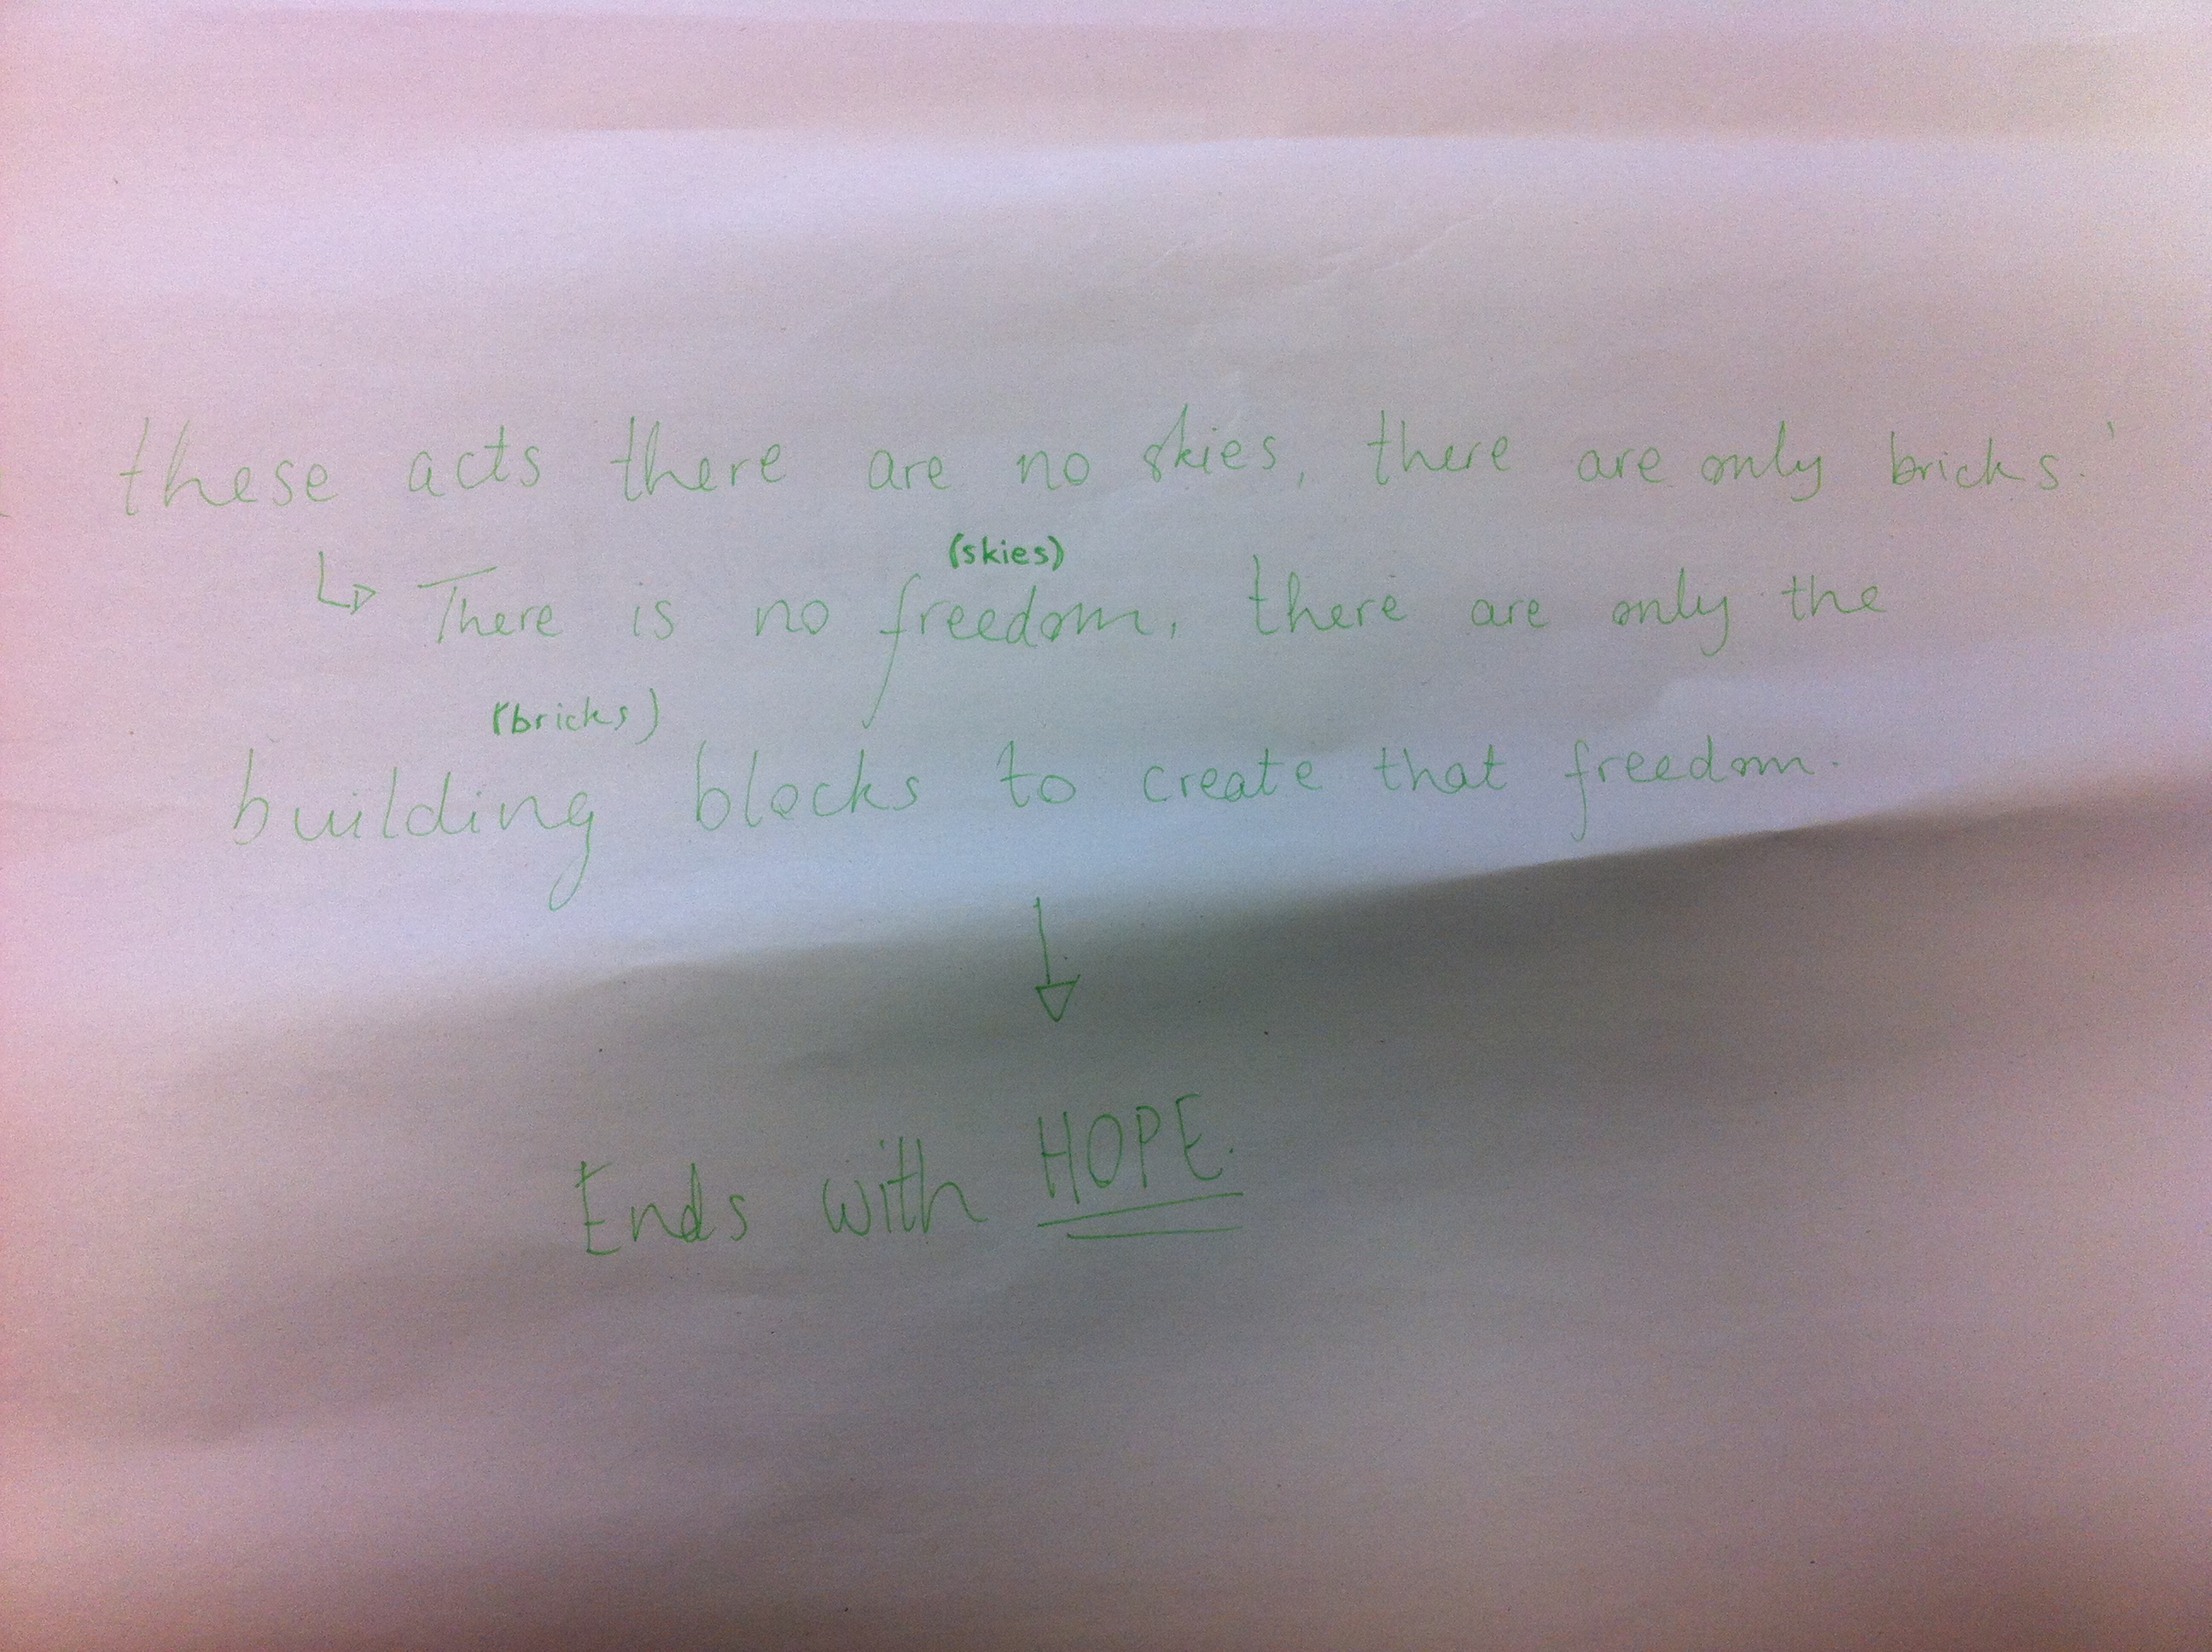 these acts there are no skies, there are only bricks.'
↳ There is no freedom, there are only the
(skies)
building blocks to create that freedom.
(bricks)
↓
Ends with HOPE.